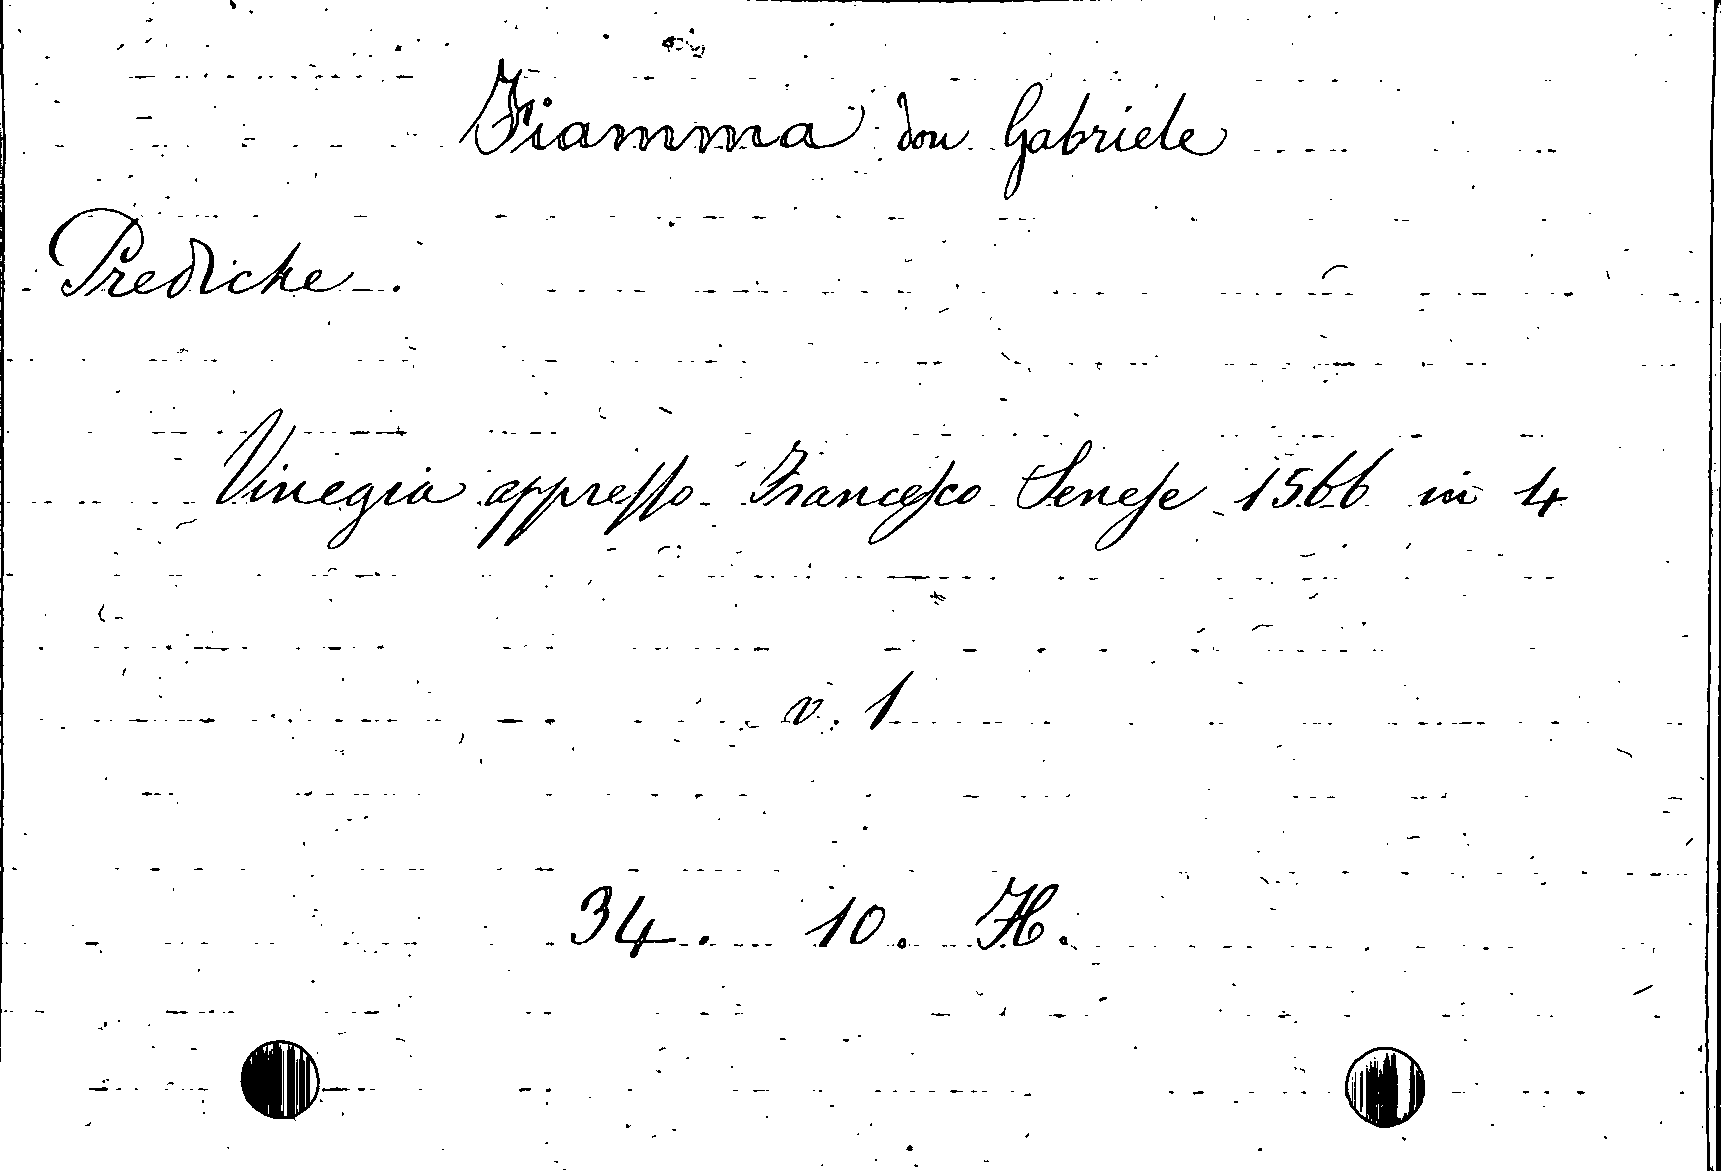 Fiamma don Gabriele
Prediche.
Vinegia appreſſo Franceſco Seneſe 1566 in 4
v. 1
34. 10. H.